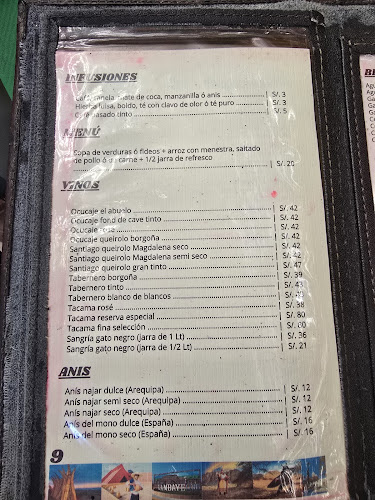 INFUSIONES
Café, canela, mate de coca, manzanilla ó anis | S/. 3
Hierba luisa, boldo, té con clavo de olor ó té puro | S/. 3
Café pasado tinto | S/. 5
MENÚ
Sopa de verduras ó fideos + arroz con menestra, saltado
de pollo ó de carne + 1/2 jarra de refresco
| S/. 20
VINOS
Ocucaje el abuelo | S/. 42
Ocucaje fond de cave tinto | S/. 42
Ocucaje rose | S/. 42
Ocucaje queirolo borgoña | S/. 42
Santiago queirolo Magdalena seco | S/. 42
Santiago queirolo Magdalena semi seco | S/. 42
Santiago queirolo gran tinto | S/. 47
Tabernero borgoña | S/. 39
Tabernero tinto | S/. 43
Tabernero blanco de blancos | S/.
Tacama rosé | S/. 38
Tacama reserva especial | S/. 80
Tacama fina selección | S/.
Sangría gato negro (jarra de 1 Lt) | S/. 36
Sangría gato negro (jarra de 1/2 Lt) | S/. 21
ANIS
Anís najar dulce (Arequipa) | S/. 12
Anís najar semi seco (Arequipa) | S/. 12
Anís najar seco (Arequipa) | S/. 12
Anís del mono dulce (España) | S/. 16
Anís del mono seco (España) | S/. 16
9